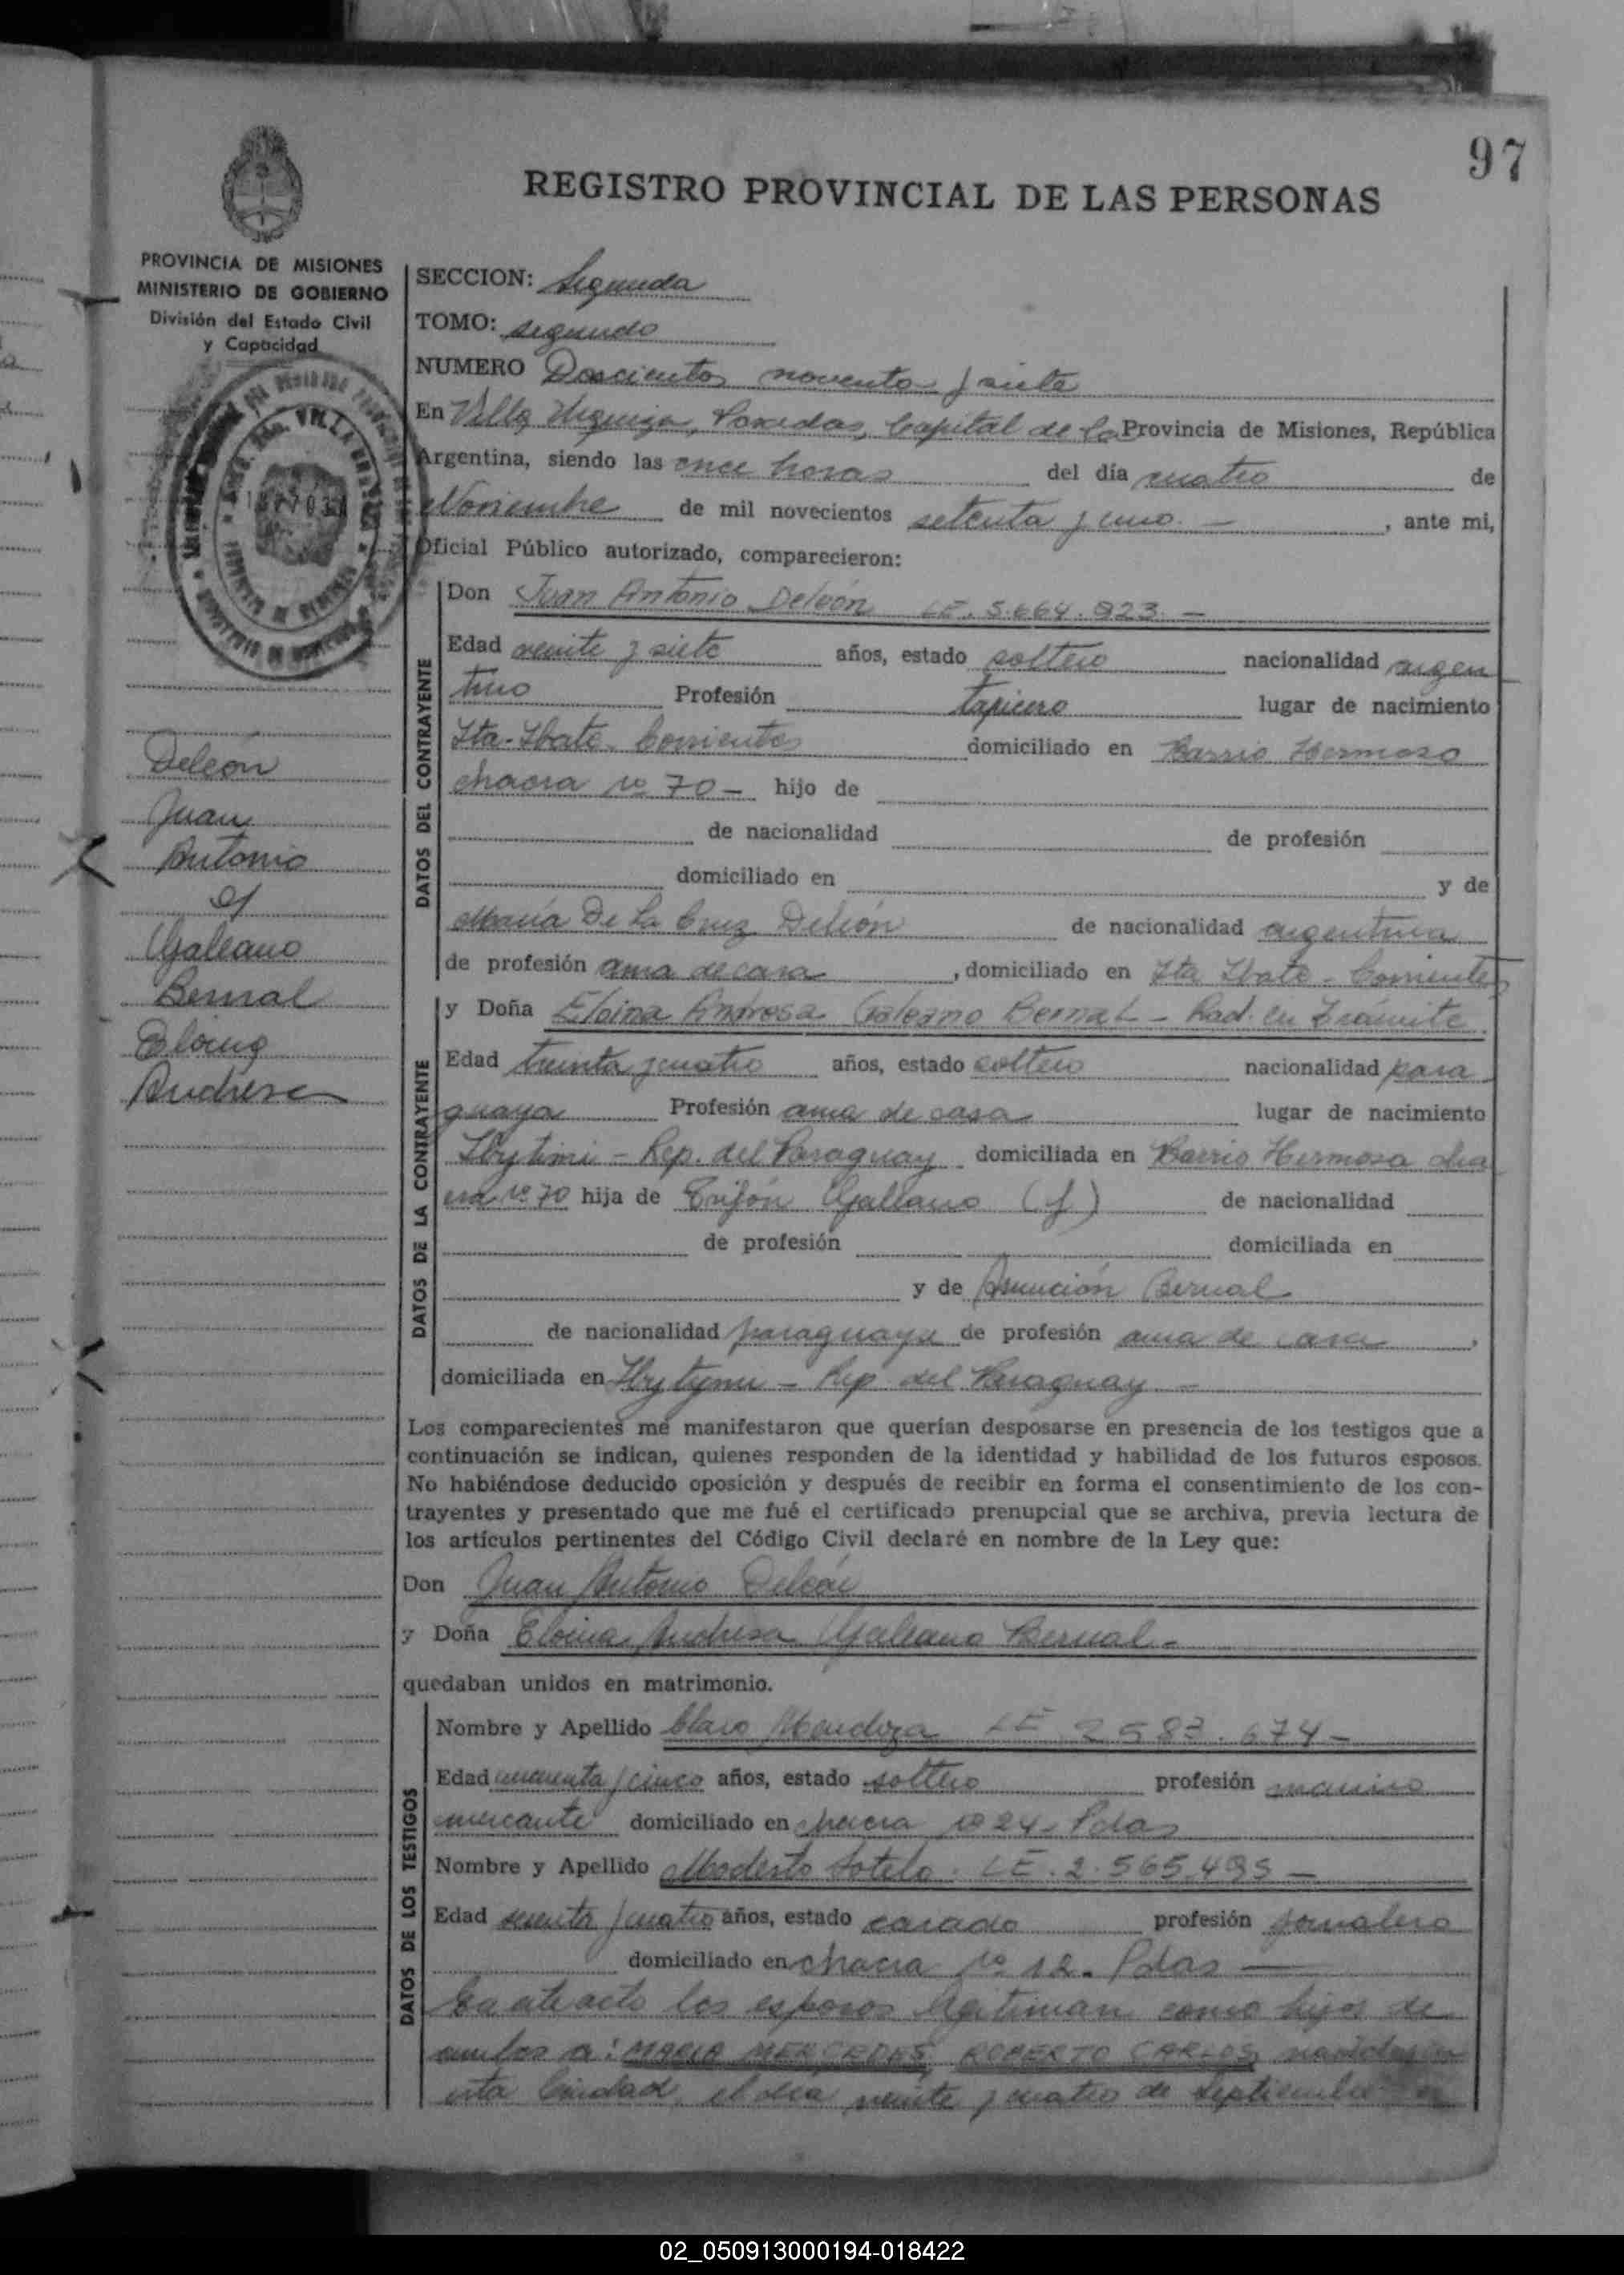 97
REGISTRO PROVINCIAL DE LAS PERSONAS
PROVINCIA DE MISIONES
MINISTERIO DE GOBIERNO
División del Estado Civil
y Capacidad
Deleón
Juan
Antonio
y
Galeano
Bernal
Eloina
Andresa
SECCION: Segunda
TOMO: segundo
NUMERO Doscientos noventa y siete
En Villa Urquiza, Posadas, Capital de la Provincia de Misiones, República
Argentina, siendo las once horas del día cuatro de
Noviembre de mil novecientos setenta y uno. — , ante mi,
Oficial Público autorizado, comparecieron:
DATOS DEL CONTRAYENTE
Don Juan Antonio Deleón LE. 5.664.923. —
Edad veinte y siete años, estado soltero nacionalidad argen
tino Profesión tapicero lugar de nacimiento
Ita-Ibate. Corrientes domiciliado en Barrio Hermoso
chacra nº 70 — hijo de
de nacionalidad de profesión
domiciliado en y de
María De La Cruz Deleón de nacionalidad argentina
de profesión ama de casa , domiciliado en Ita Ibate - Corrientes
DATOS DE LA CONTRAYENTE
y Doña Eloina Andresa Galeano Bernal — Rad. en Trámite
Edad treinta y cuatro años, estado soltera nacionalidad para
guaya Profesión ama de casa lugar de nacimiento
Ibytimi — Rep. del Paraguay domiciliada en Barrio Hermoso cha
cra nº 70 hija de Trifón Galeano (f) de nacionalidad
de profesión domiciliada en
y de Asunción Bernal
de nacionalidad paraguaya de profesión ama de casa ,
domiciliada en Ibytymi — Rep. del Paraguay —
Los comparecientes me manifestaron que querían desposarse en presencia de los testigos que a
continuación se indican, quienes responden de la identidad y habilidad de los futuros esposos.
No habiéndose deducido oposición y después de recibir en forma el consentimiento de los con-
trayentes y presentado que me fué el certificado prenupcial que se archiva, previa lectura de
los artículos pertinentes del Código Civil declaré en nombre de la Ley que:
Don Juan Antonio Deleón
y Doña Eloina Andresa Galeano Bernal —
quedaban unidos en matrimonio.
DATOS DE LOS TESTIGOS
Nombre y Apellido Claro Mendoza LE 2583.674 —
Edad cincuenta y cinco años, estado soltero profesión marino
mercante domiciliado en chacra nº 24 - Pdas
Nombre y Apellido Modesto Sotelo. LE. 2.565.495 —
Edad y cuatro años, estado casado profesión jornalero
domiciliado en chacra nº 12. Pdas —
En este acto los esposos legitiman como hijos de
ambos a: MARIA MERCEDES, ROBERTO CARLOS nacidos en
esta Ciudad, el dia veinte y cuatro de Septiembre
02_050913000194-018422